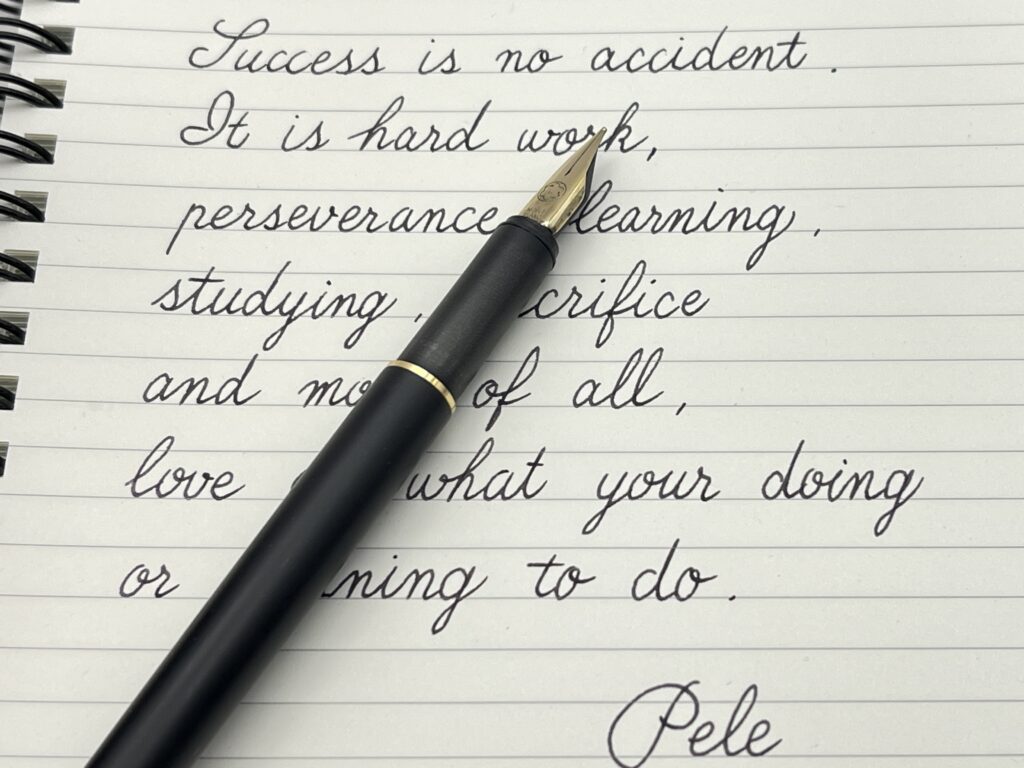 Success is no accident.
It is hard work,
perseverance learning,
studying, crifice
and of all,
love what your doing
or ning to do.
Pele